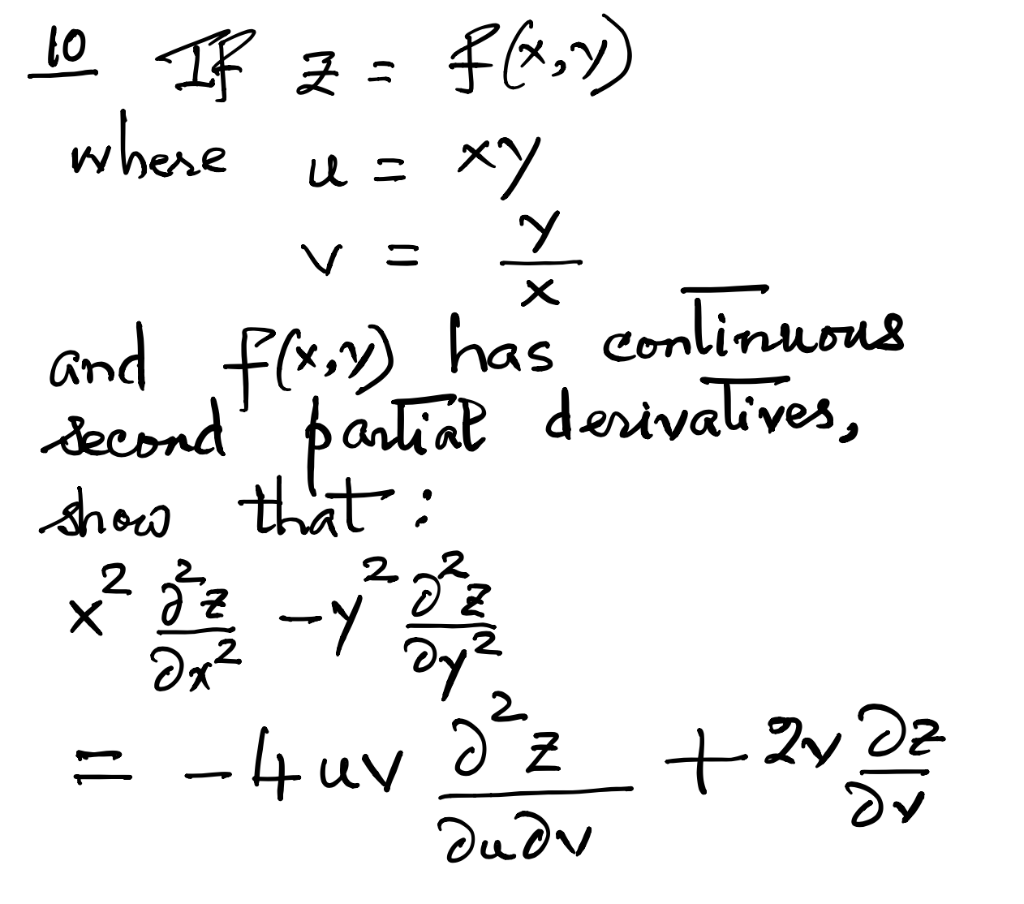 10 If z = f(x,y)
where u = xy
v = y/x
and f(x,y) has continuous
second partial derivatives,
show that :
x² ∂²z/∂x² - y² ∂²z/∂y²
= -4uv ∂²z/∂u∂v + 2v ∂z/∂v